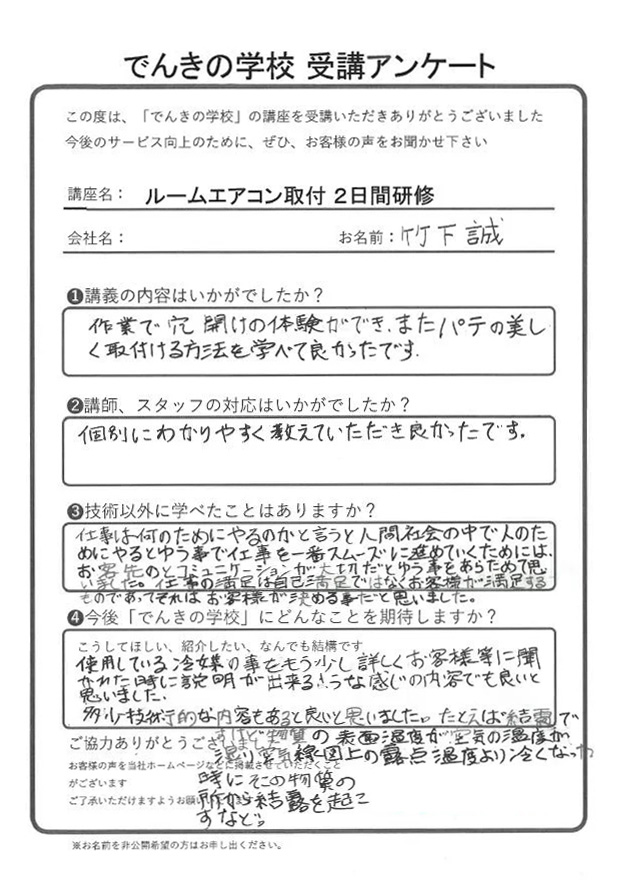 でんきの学校 受講アンケート
この度は、「でんきの学校」の講座を受講いただきありがとうございました
今後のサービス向上のために、ぜひ、お客様の声をお聞かせ下さい
講座名： ルームエアコン取付 2日間研修
会社名： お名前：竹下誠
❶講義の内容はいかがでしたか？
作業で穴開けの体験ができ、またパテの美し
く取付ける方法を学べて良かったです。
❷講師、スタッフの対応はいかがでしたか？
個別にわかりやすく教えていただき良かったです。
❸技術以外に学べたことはありますか？
仕事は何のためにやるのかと言うと人間社会の中で人のた
めにやるとゆう事で仕事を一番スムーズに進めていくためには、
お客先のとコミュニケーションが大切だとゆう事をあらためて思
い家た。仕事の満足は自己満足ではなくお客様が満足する
ものであってそれは、お客様が決める事だと思いました。
❹今後「でんきの学校」にどんなことを期待しますか？
こうしてほしい、紹介したい、なんでも結構です
使用している冷媒の事をもう少し詳しくお客様等に聞
かれた時に説明が出来るような感じの内容でも良いと
思いました。
多少技術的な内容もあると良いと思いました。たとえば結露で
すけど物質の表面温度が空気の温度が
ご協力ありがとうございました
湿り空気線図上の露点温度より冷くなった
お客様の声を当社ホームページなどに掲載させていただくこと
がございます
時にその物質の
ご了承いただけますようお願い
所から結露を起こ
すなど。
※お名前を非公開希望の方はお申し出ください。